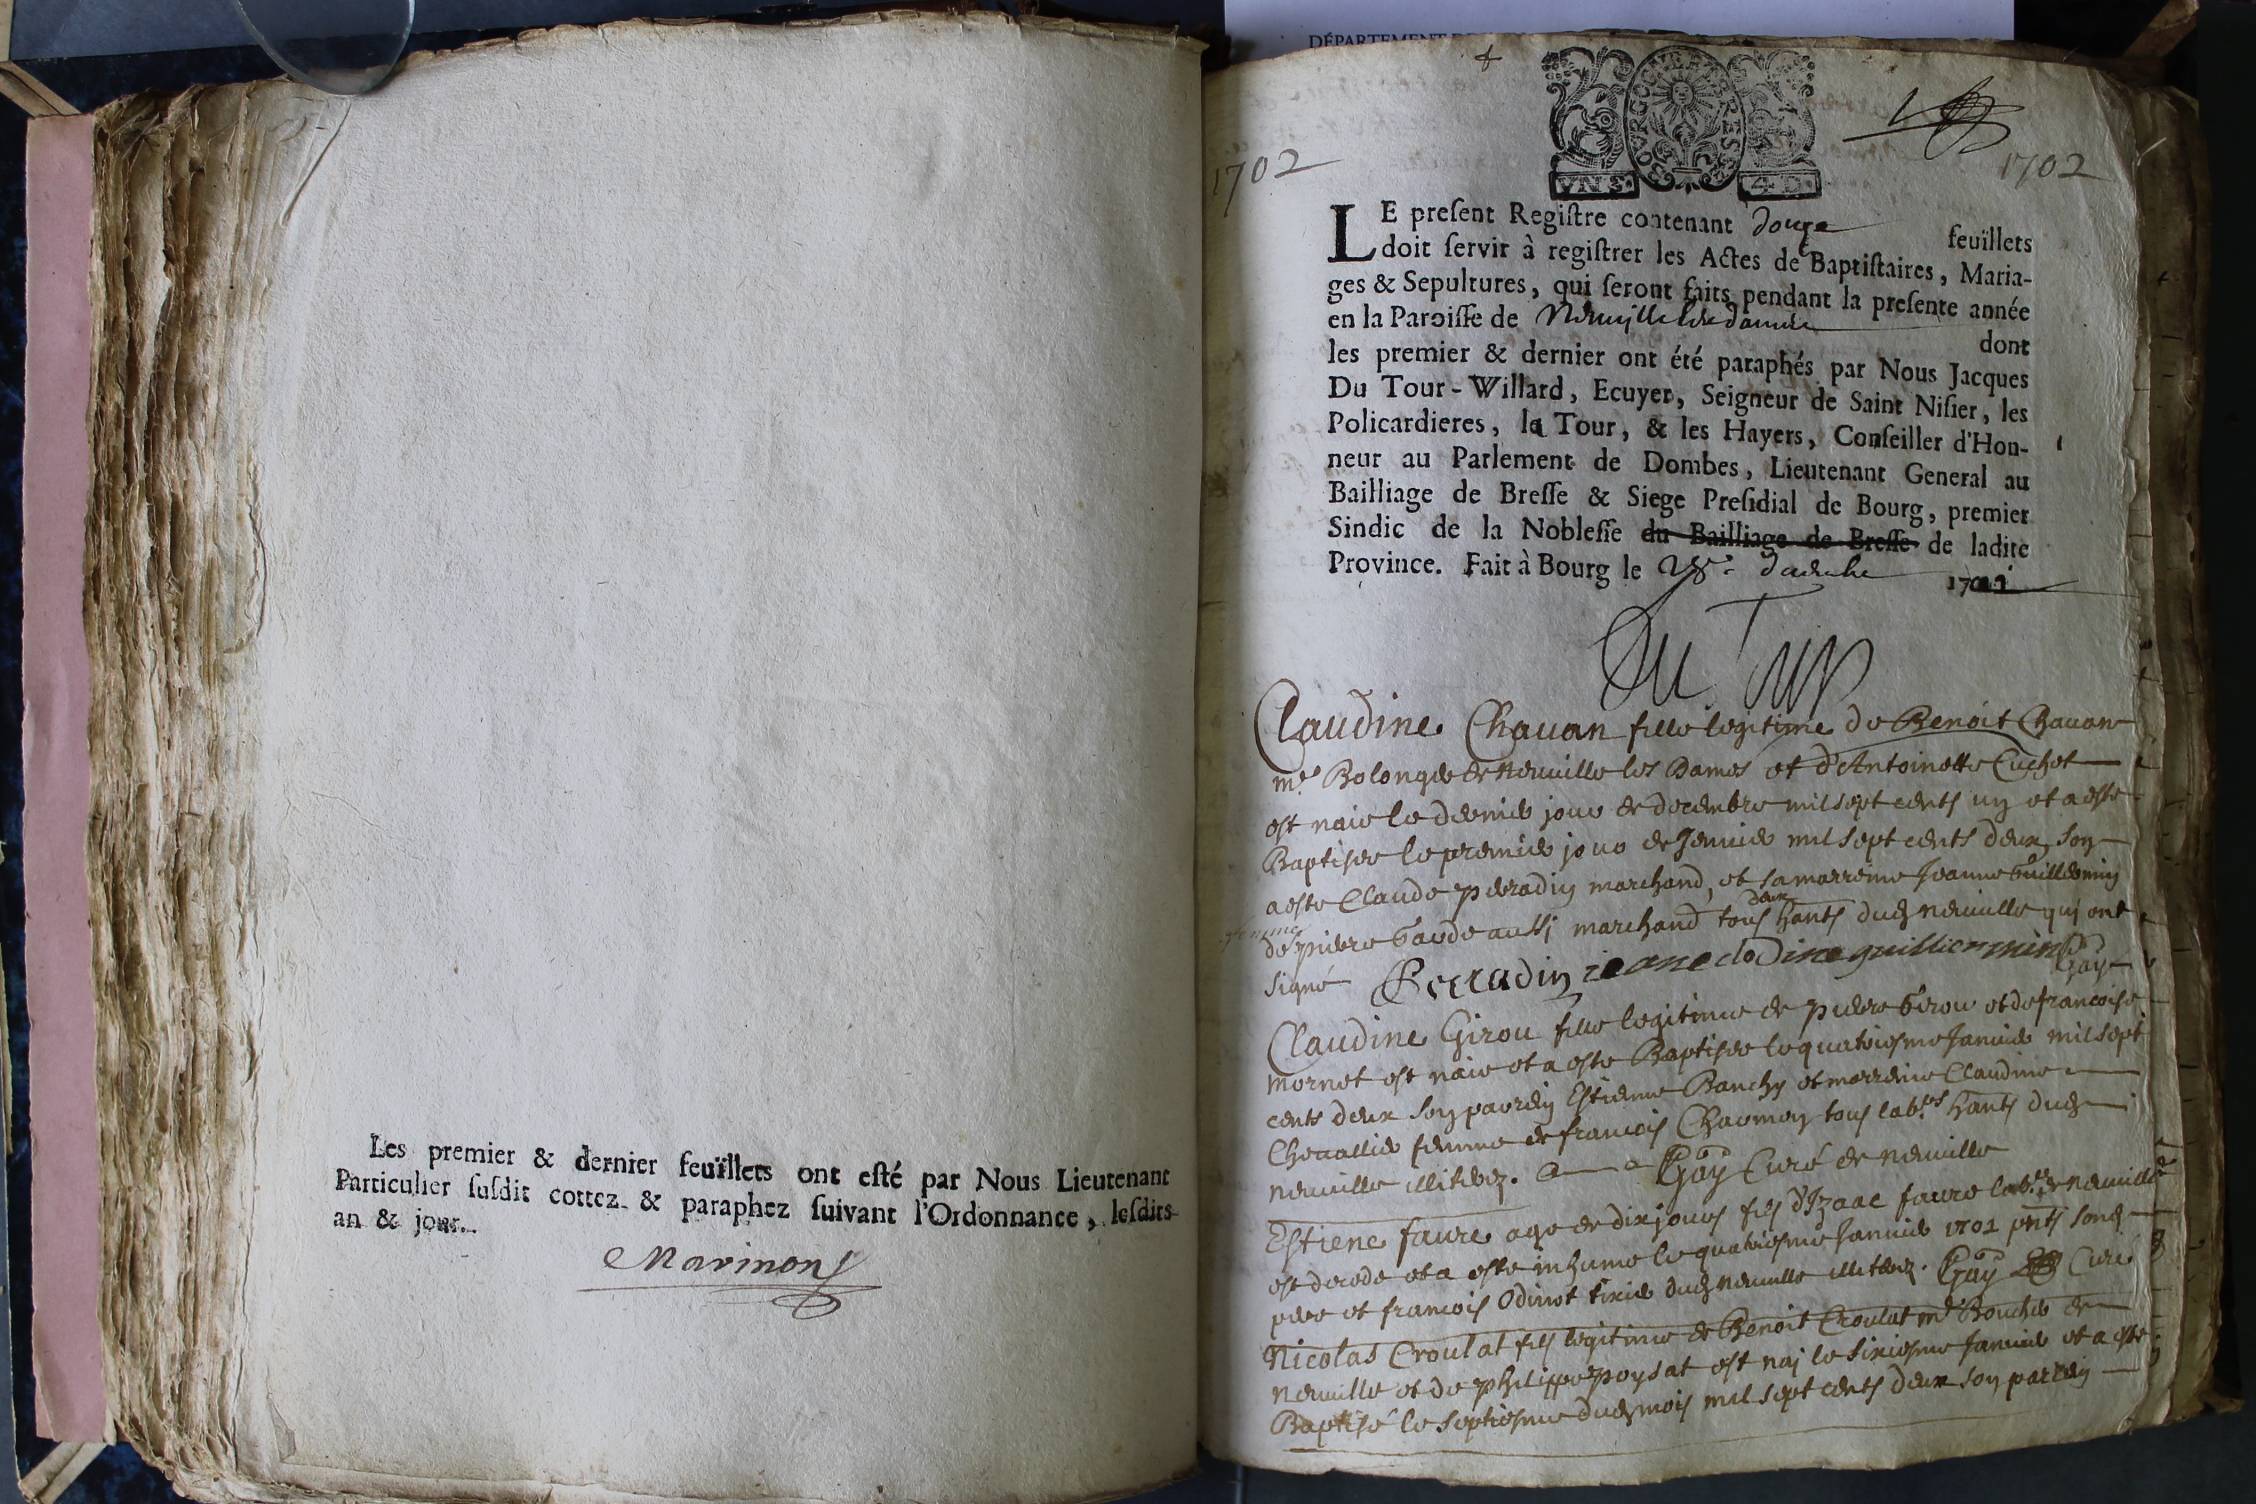 Les premier & dernier feuïllets ont esté par Nous Lieutenant
Particulier susdit cottez & paraphez suivant l'Ordonnance, lesdits
an & jour.
Marinon
DÉPARTEMENT DE
1702
1702
BOVRGOGNE ET BRESSE
VN S.
4 D.
LE present Registre contenant douze feuïllets
doit servir à registrer les Actes de Baptistaires, Maria-
ges & Sepultures, qui seront faits pendant la presente année
en la Paroisse de Neuville les dames dont
les premier & dernier ont été paraphés par Nous Jacques
Du Tour-Willard, Ecuyer, Seigneur de Saint Nisier, les
Policardieres, la Tour, & les Hayers, Conseiller d'Hon-
neur au Parlement de Dombes, Lieutenant General au
Bailliage de Bresse & Siege Presidial de Bourg, premier
Sindic de la Noblesse du Bailliage de Bresse de ladite
Province. Fait à Bourg le 1701
Du Tour
Claudine Chavan fille legitime de Benoit Chavan
me Bolongier de Neuville les Dames et d'Antoinette Cuchet
est naie le dernier jour de decembre mil sept cents un et a este
Baptisee le premier jour de Janvier mil sept cents deux son
a este Claude perradin marchand, et sa marreine Jeanne Guillermin
femme
de pierre Garde aussi marchand tous deux hants dudt neuville qui ont
signé Perradin jeane clodine guilliermin Gay
Claudine Girou fille legitime de pierre Girou et de francoise
mornet est naie et a este Baptisee le quatriesme Janvier mil sept
cents deux son parrein Estienne Banchy et marreine Claudine
Chevallier femme de francois Chaumon tous labrs hants dudt
neuville illiterez. Gay Curé de neuville
Estiene faure age de dix jours fils d'Izaac faure labr de neuville
est decede et a este inhume le quatriesme Janvier 1702 pnts sondt
pere et francois Odinot tixier dudt neuville illiterez. Gay Curé
Nicolas Croulat fils legitime de Benoit Croulat me Boucher de
neuville et de philippe poysat est naj le sixiesme Janvier et a este
Baptisé le septiesme dudt mois mil sept cents deux son parrein